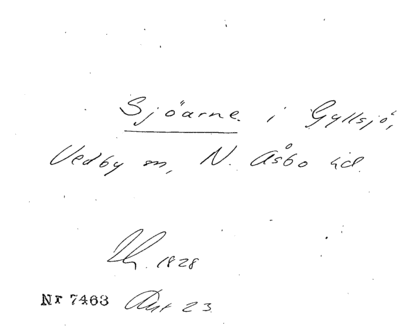 Sjöarne i Gyllsjö,
Vedby sn, N. Åsbo hd.
1828
Nr 7463 Ant 23